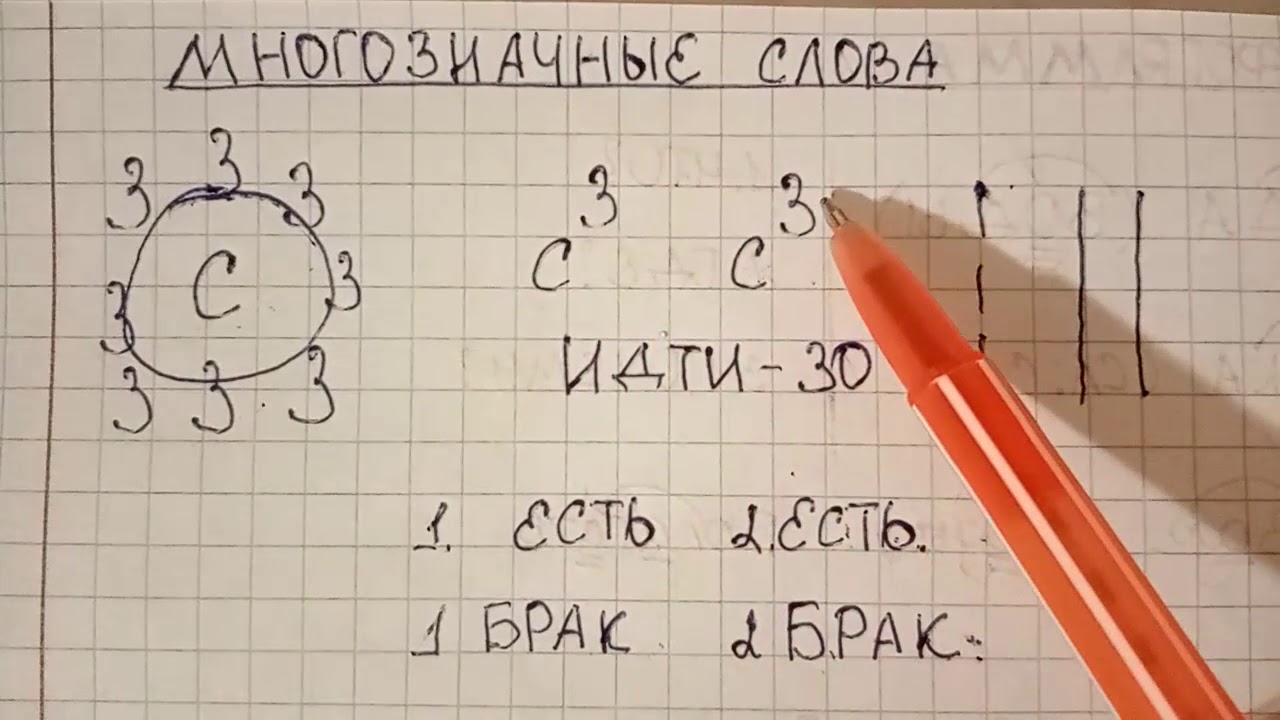 МНОГОЗНАЧНЫЕ СЛОВА
З З З
З С З
З З З
З З
С С
ИДТИ - 30
1. ЕСТЬ 2. ЕСТЬ.
1 БРАК 2 БРАК: